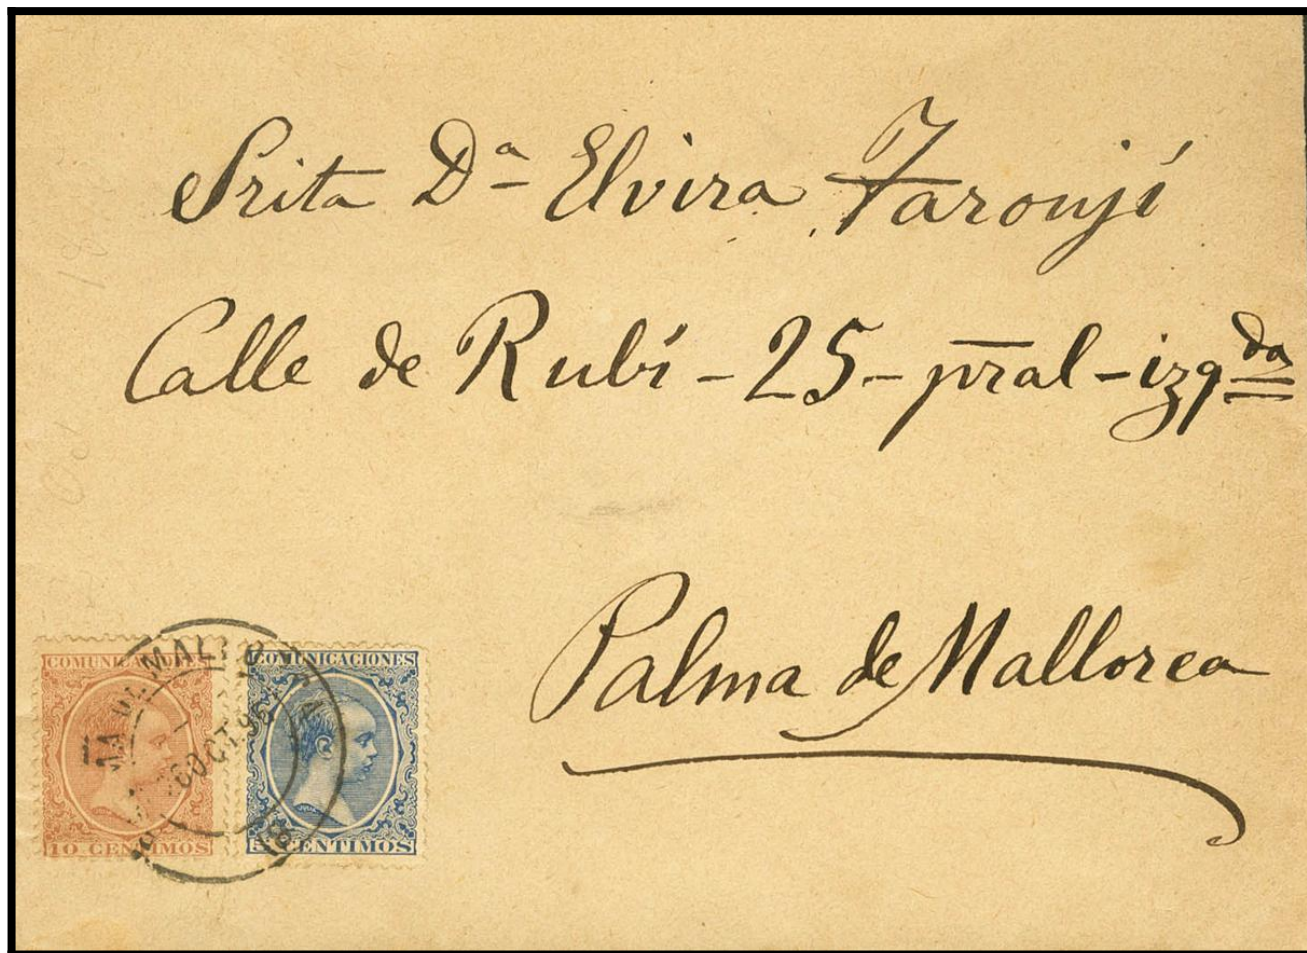 Srita Dª Elvira Taronjí
Calle de Rubí - 25 - pral - izqda
Palma de Mallorca
COMUNICACIONES
10 CENTIMOS
COMUNICACIONES
5 CENTIMOS
OCT. 96